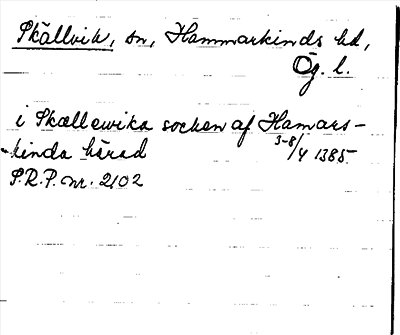 Skällvik, sn, Hammarkinds hd,
Ög. l.
i Skællewika socken af Hamars-
kinda härad 3-8/4 1385
S.R.P. nr. 2102